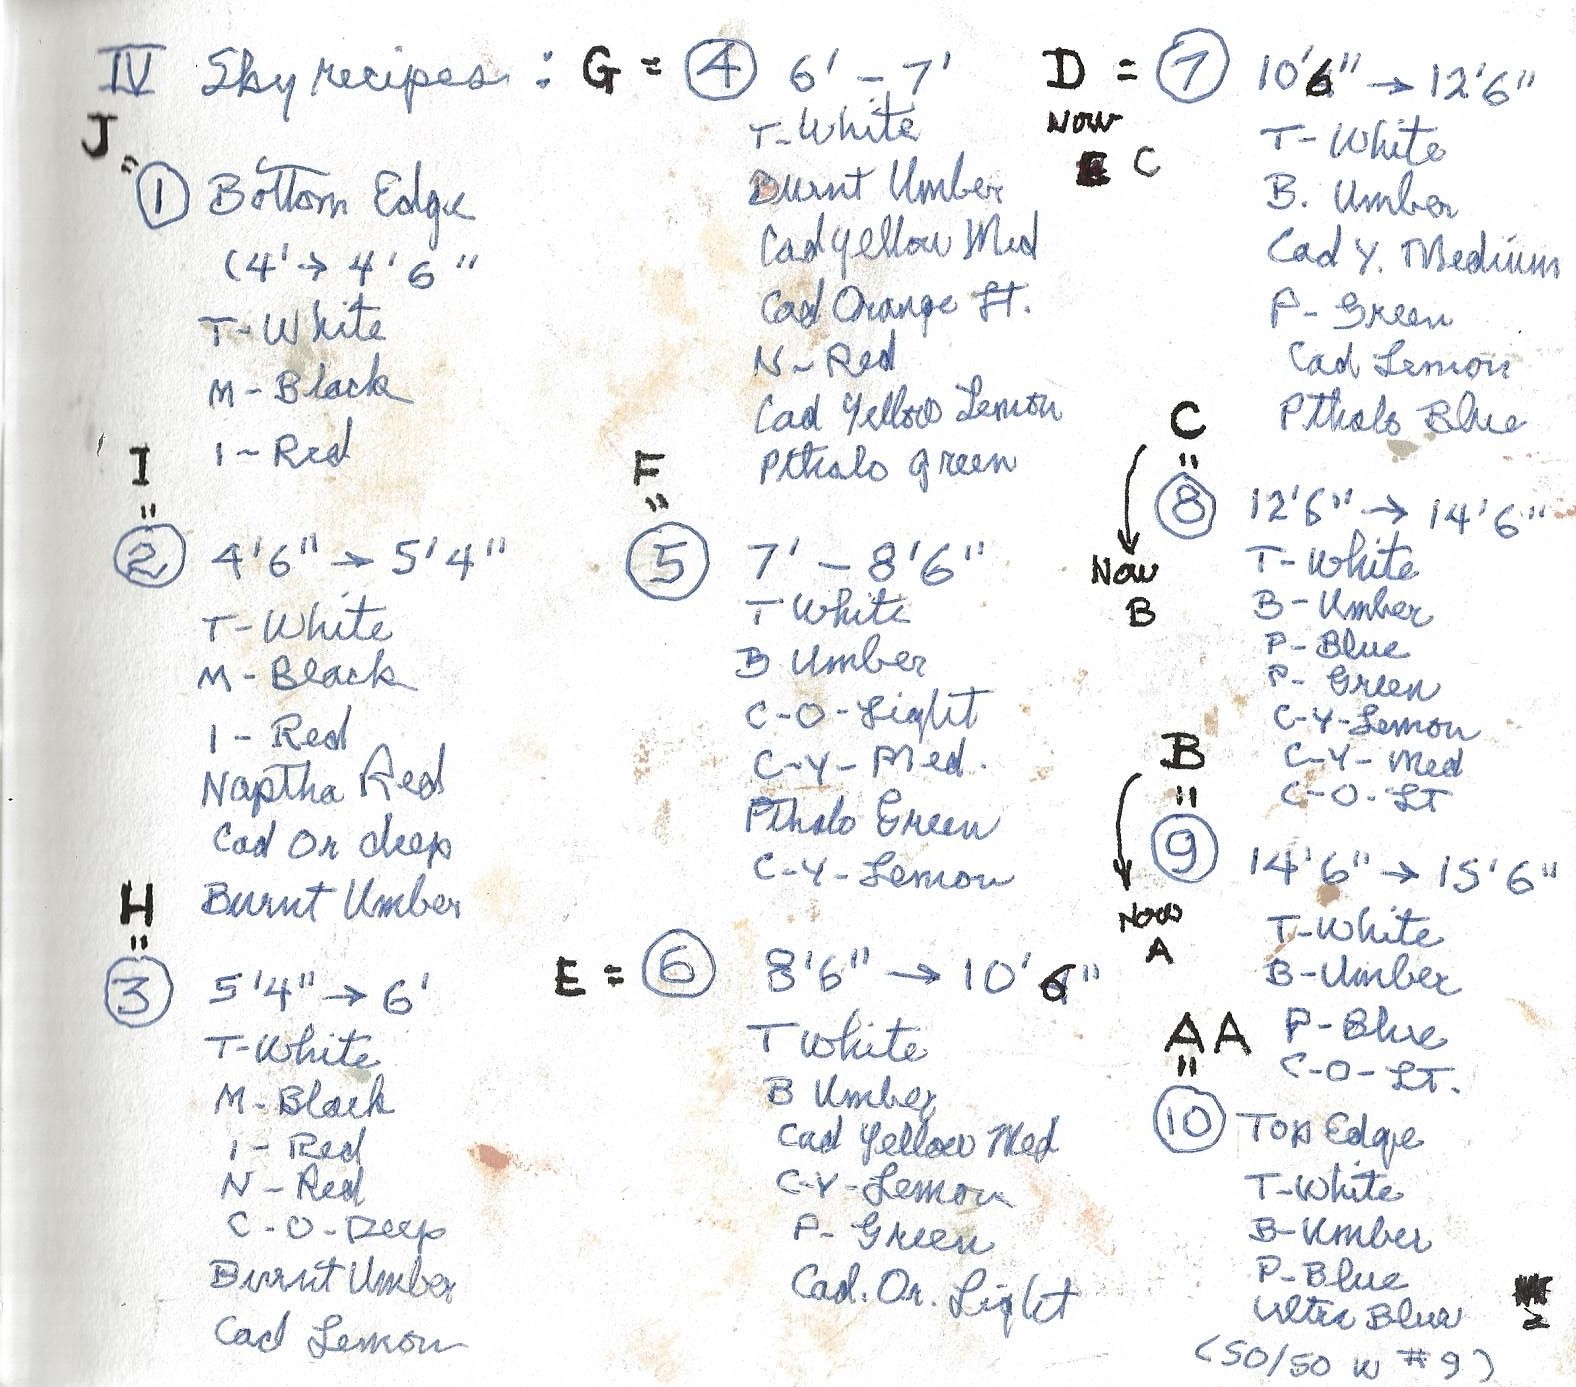 IV Sky recipes :
J
=
1 Bottom Edge
(4' → 4'6"
T-White
M-Black
I-Red
I
=
2 4'6" → 5'4"
T-White
M-Black
I-Red
Naptha Red
Cad Or deep
Burnt Umber
H
=
3 5'4" → 6'
T-White
M-Black
I-Red
N-Red
C-O-Deep
Burnt Umber
Cad Lemon
G = 4 6' – 7'
T-White
Burnt Umber
Cad yellow Med
Cad Orange Lt.
N-Red
Cad Yellow Lemon
Pthalo green
F
=
5 7' – 8'6"
T White
B Umber
C-O-Light
C-Y-Med.
Pthalo Green
C-Y-Lemon
E = 6 8'6" → 10'6"
T White
B Umber
Cad Yellow Med
C-Y-Lemon
P-Green
Cad. Or. Light
D = 7 10'6" → 12'6"
Now
C
T-White
B. Umber
Cad Y. Medium
P-Green
Cad Lemon
Pthalo Blue
C
=
8 12'6" → 14'6"
↓
Now
B
T-White
B-Umber
P-Blue
P-Green
C-Y-Lemon
C-Y-Med
C-O-LT
B
=
9 14'6" → 15'6"
↓
Now
A
T-White
B-Umber
P-Blue
C-O-LT.
AA
=
10 Top Edge
T-White
B-Umber
P-Blue
Ultra Blue
(50/50 w #9)